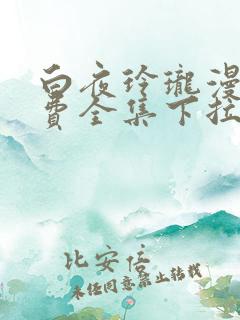 白夜玲瓏漫
費全集下拉
比安信
未经同意禁止转载